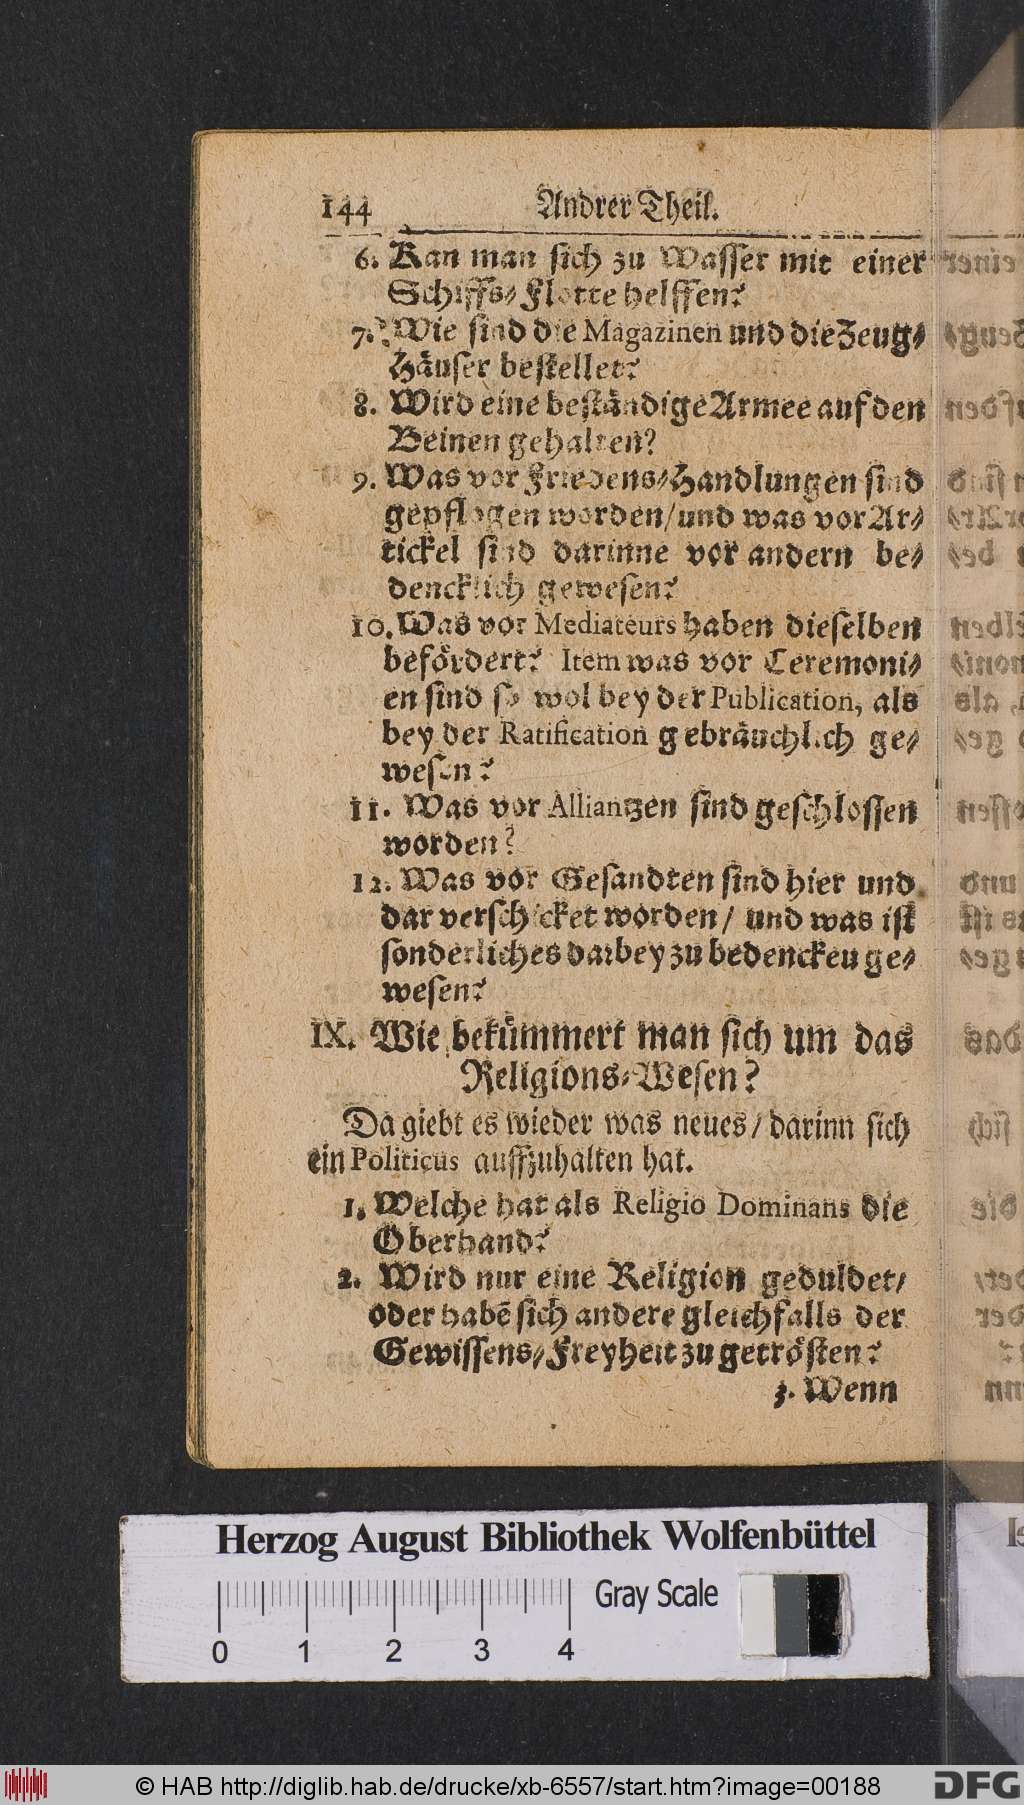 144 Andrer Theil.
6. Kan man sich zu Wasser mit einer
Schiffs-Flotte helffen?
7. Wie sind die Magazinen und die Zeug-
Häuser bestellet?
8. Wird eine beständige Armee auf den
Beinen gehalten?
9. Was vor Friedens-Handlungen sind
gepflogen worden/ und was vor Ar-
tickel sind darinne vor andern be-
dencklich gewesen?
10. Was vor Mediateurs haben dieselben
befördert? Item was vor Ceremoni-
en sind so wol bey der Publication, als
bey der Ratification gebräuchlich ge-
wesen?
11. Was vor Alliantzen sind geschlossen
worden?
12. Was vor Gesandten sind hier und
dar verschicket worden/ und was ist
sonderliches darbey zu bedencken ge-
wesen?
IX. Wie bekümmert man sich um das
Religions-Wesen?
Da giebt es wieder was neues/ darinn sich
ein Politicus auffzuhalten hat.
1. Welche hat als Religio Dominans die
Oberhand?
2. Wird nur eine Religion geduldet/
oder habē sich andere gleichfalls der
Gewissens-Freyheit zu getrösten?
3. Wenn
Herzog August Bibliothek Wolfenbüttel
Gray Scale
0 1 2 3 4
© HAB http://diglib.hab.de/drucke/xb-6557/start.htm?image=00188
DFG